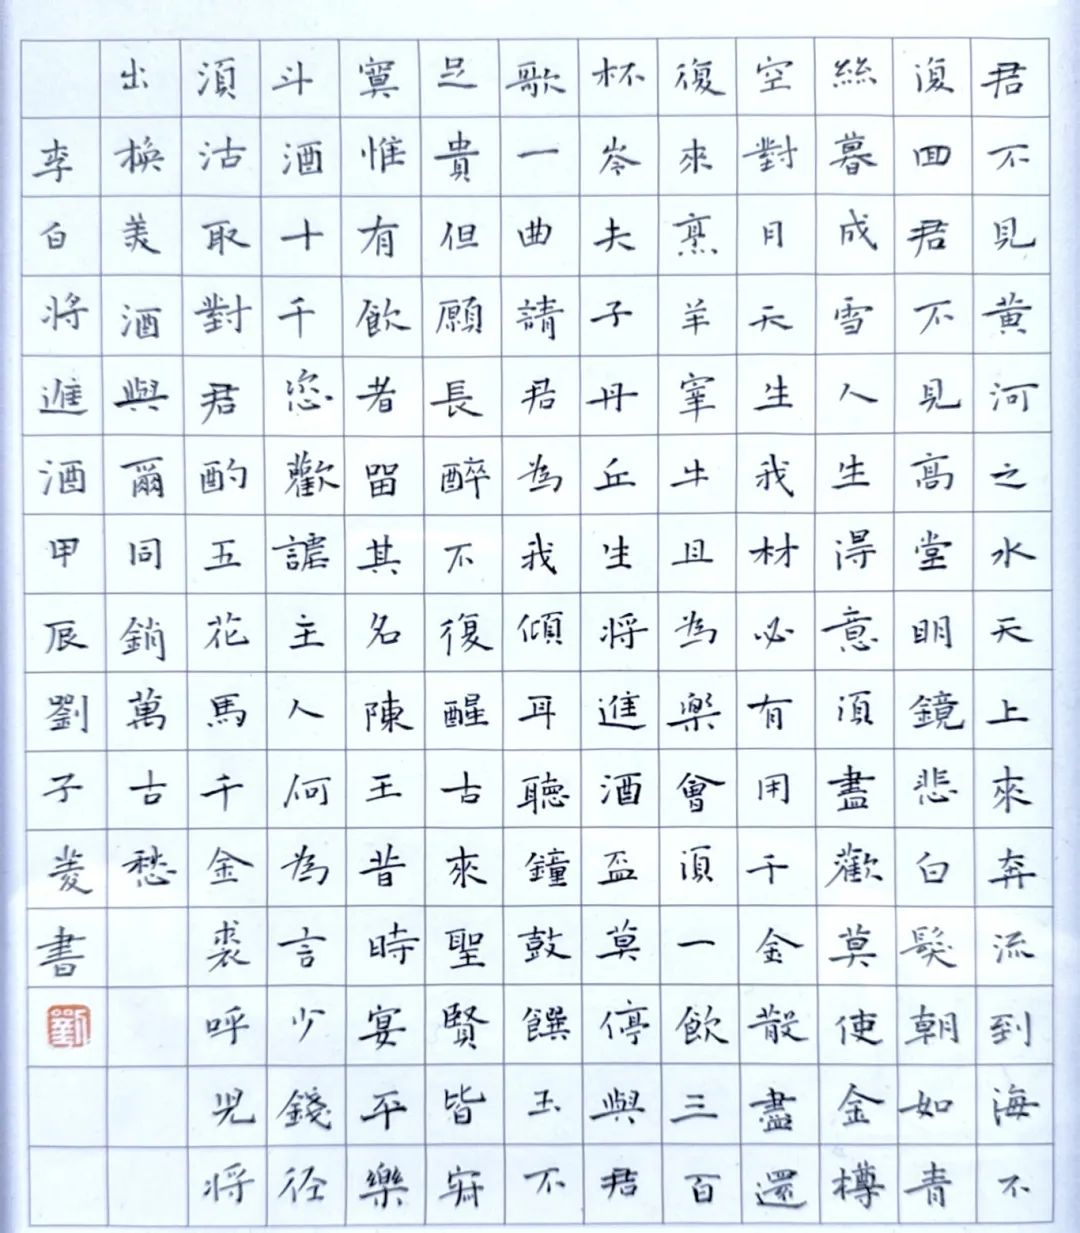 君不見黃河之水天上來奔流到海不
復回君不見高堂明鏡悲白髮朝如青
絲暮成雪人生得意須盡歡莫使金樽
空對月天生我材必有用千金散盡還
復來烹羊宰牛且為樂會須一飲三百
杯岑夫子丹丘生將進酒盃莫停與君
歌一曲請君為我傾耳聽鐘鼓饌玉不
足貴但願長醉不復醒古來聖賢皆寂
寞惟有飲者留其名陳王昔時宴平樂
斗酒十千恣歡謔主人何為言少錢径
須沽取對君酌五花馬千金裘呼兒將
出換美酒與爾同銷萬古愁
李白將進酒甲辰劉子菱書
劉